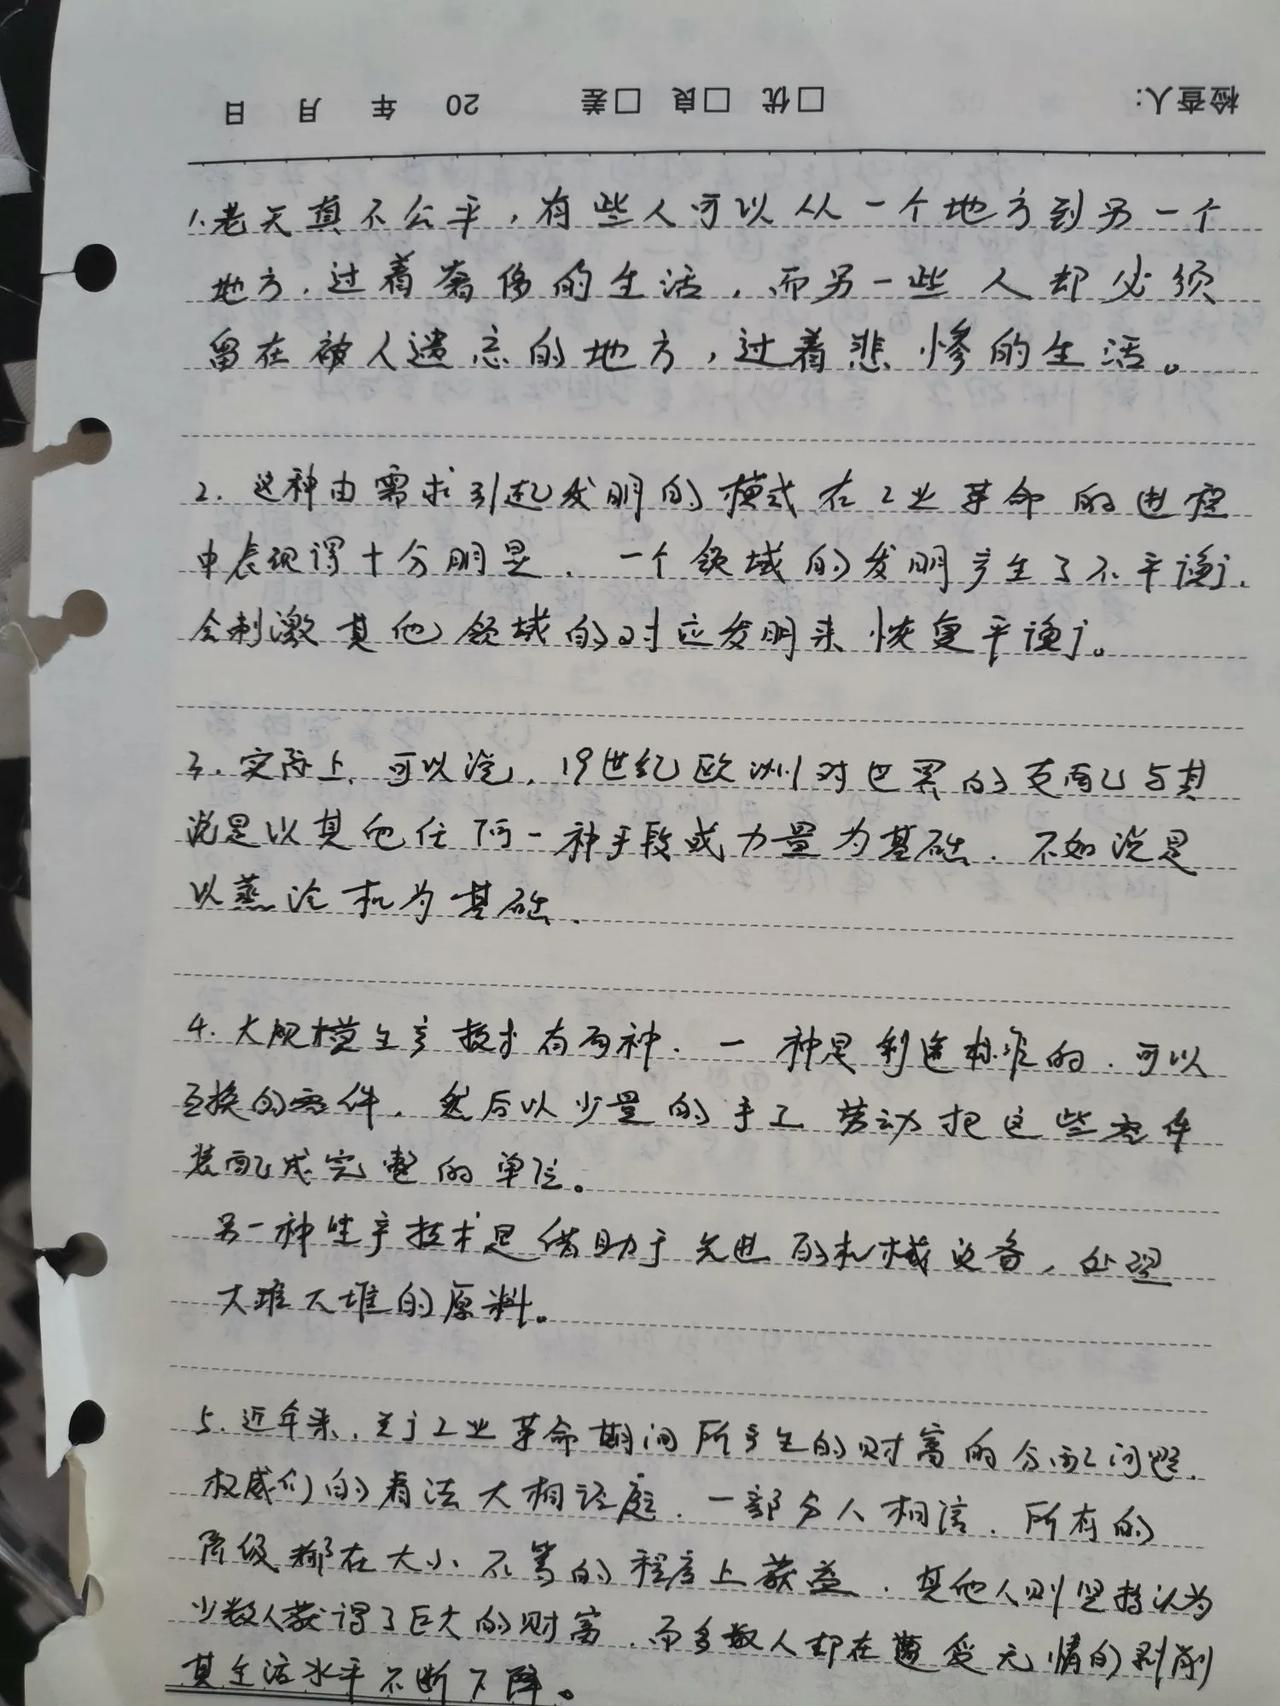 检查人: □优 □良 □差 20 年 月 日
1.老天真不公平，有些人可以从一个地方到另一个
地方，过着奢侈的生活，而另一些人却必须
留在被人遗忘的地方，过着悲惨的生活。
2. 这种由需求引起发明的模式在工业革命的进程
中表现得十分明显，一个领域的发明产生了不平衡，
会刺激其他领域的对应发明来恢复平衡。
3. 实际上，可以说，19世纪欧洲对世界的支配与其
说是以其他任何一种手段或力量为基础，不如说是
以蒸汽机为基础.
4. 大规模生产技术有两种，一种是制造标准的，可以
互换的零件，然后以少量的手工劳动把这些零件
装配成完整的单位。
另一种生产技术是借助于先进的机械设备，处理
大堆大堆的原料。
5. 近年来，关于工业革命期间所产生的财富的分配问题，
权威们的看法大相径庭，一部分人相信，所有的
阶级都在大小不等的程度上获益，其他人则坚持认为
少数人获得了巨大的财富，而多数人却在遭受无情的剥削
其生活水平不断下降。